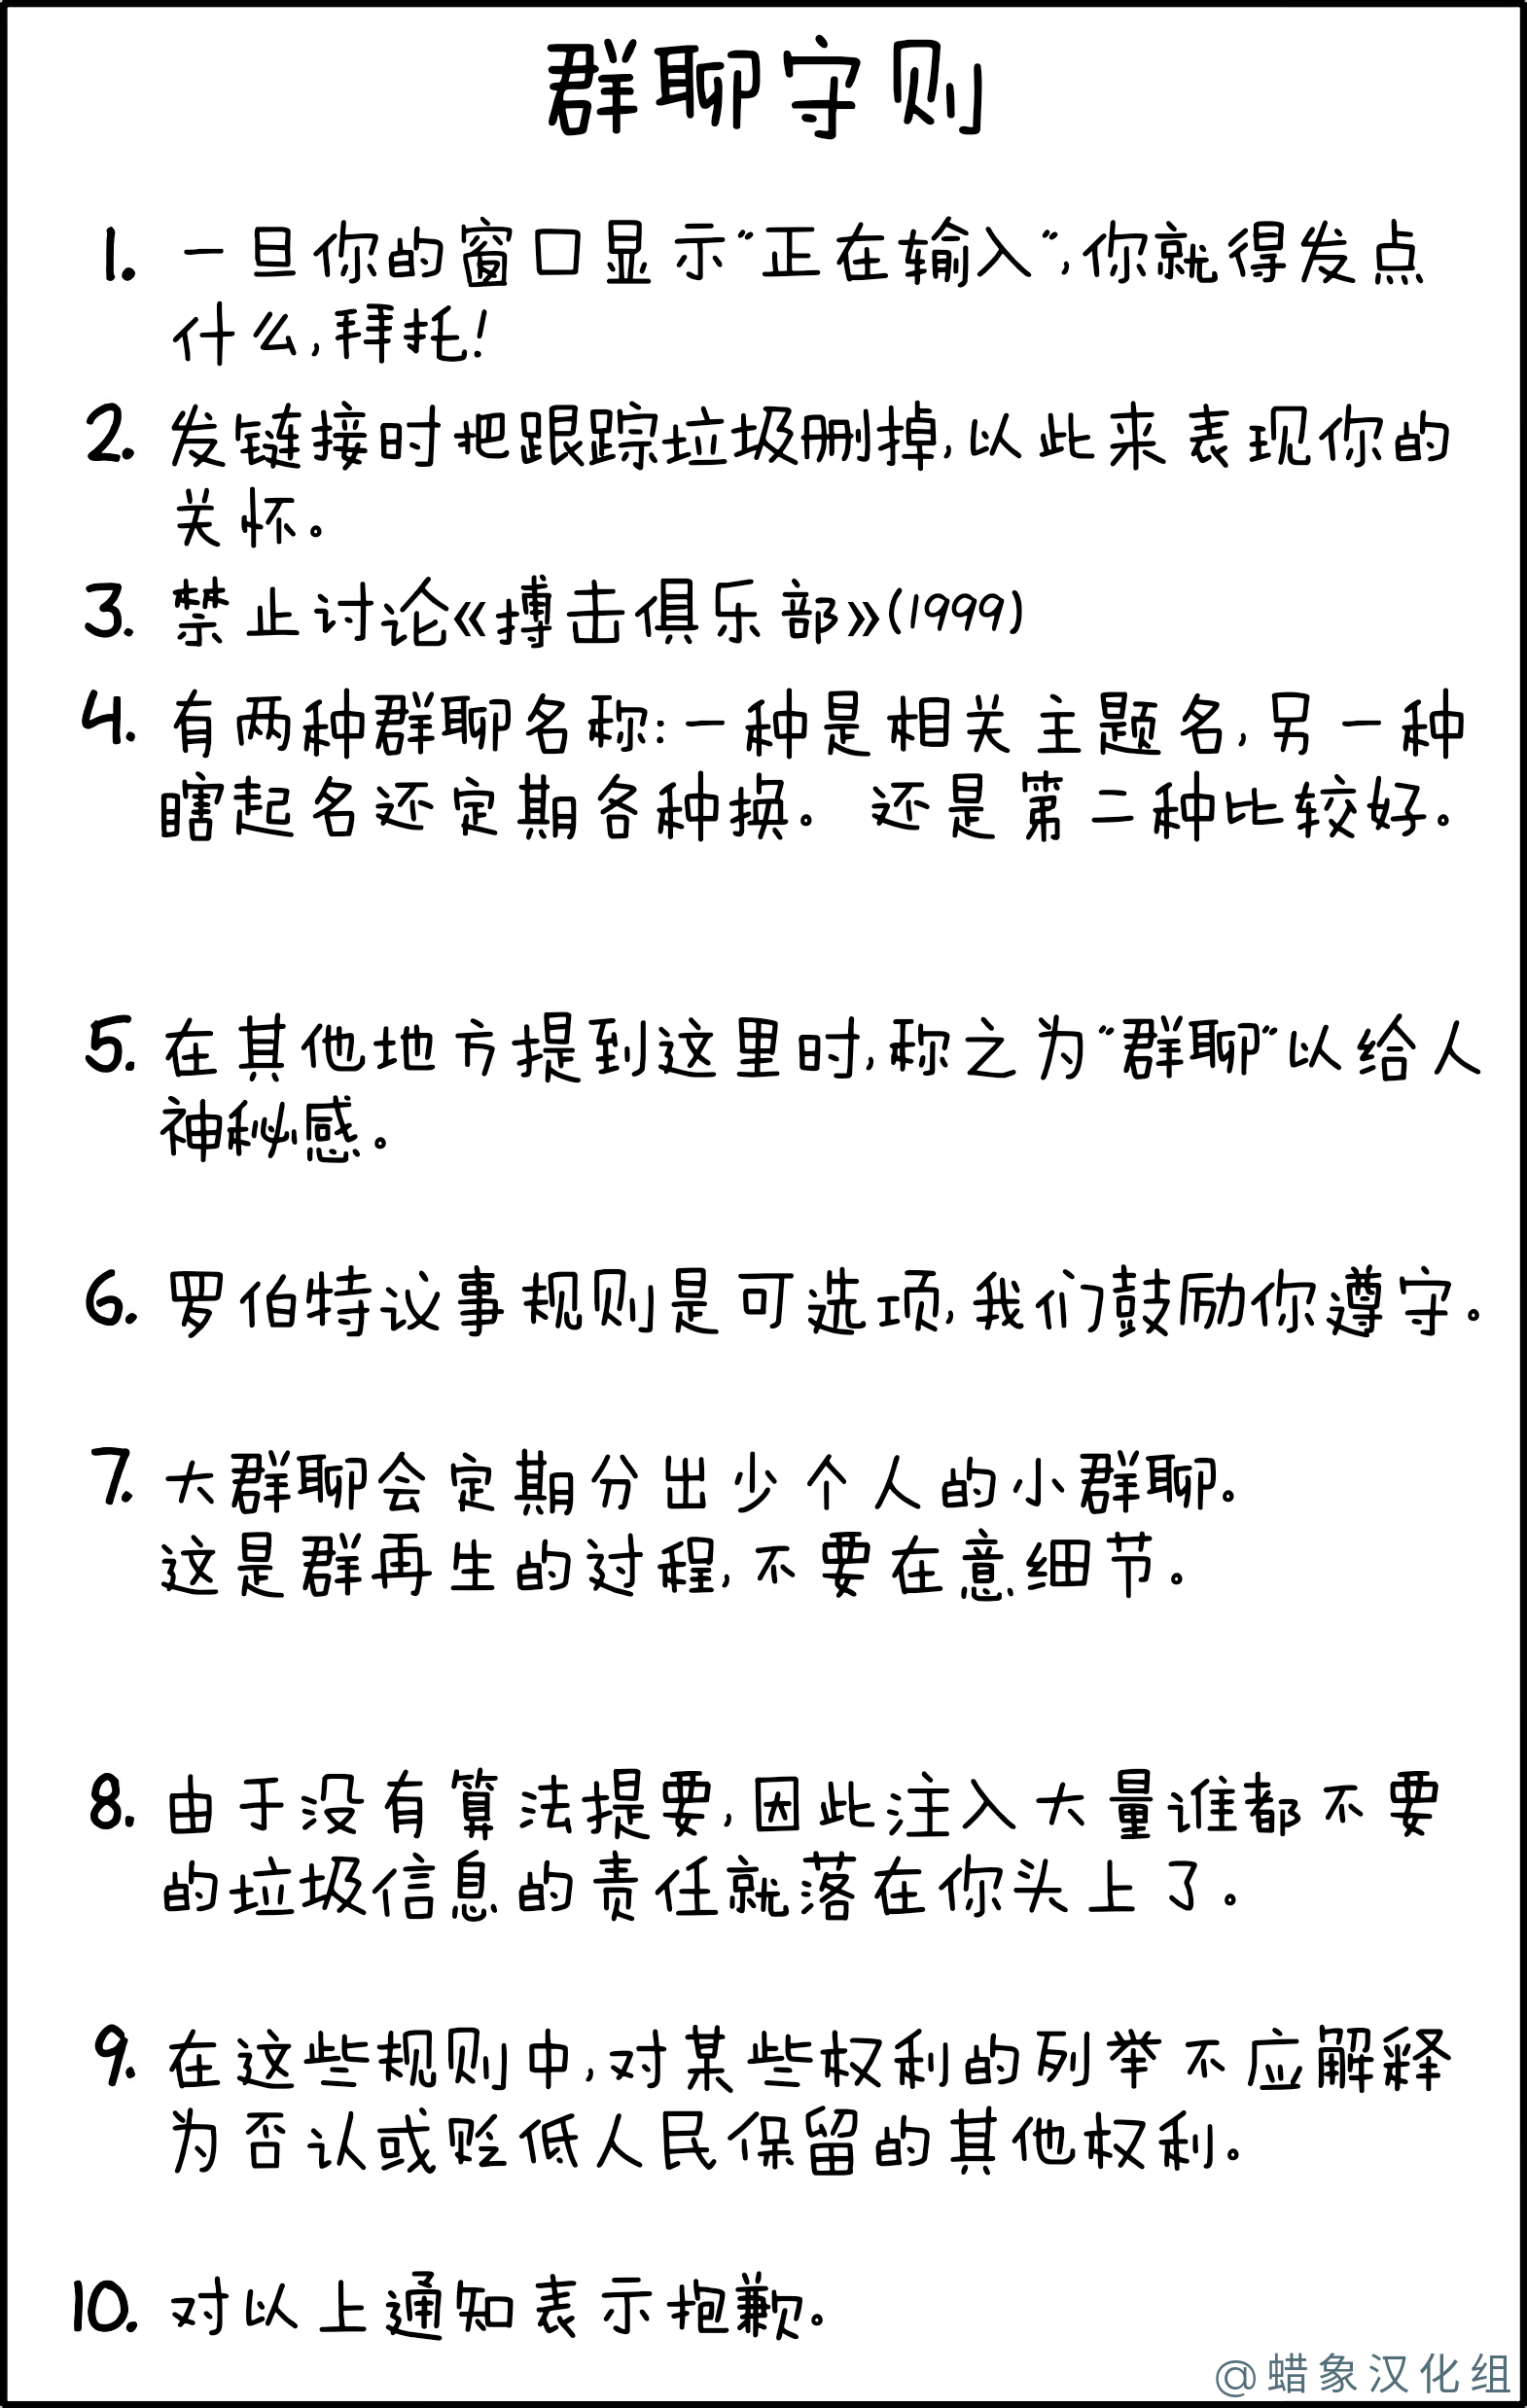 群聊守则
1. 一旦你的窗口显示“正在输入”,你就得发点
什么,拜托!
2. 发链接时把跟踪垃圾删掉,以此来表现你的
关怀。
3. 禁止讨论《搏击俱乐部》(1999)
4. 有两种群聊名称:一种是相关主题名,另一种
瞎起名还定期各种换。 还是第二种比较好。
5. 在其他地方提到这里时,称之为“群聊”以给人
神秘感。
6. 罗伯特议事规则是可选项,我们鼓励你遵守。
7. 大群聊会定期分出少个人的小群聊。
这是群再生的过程,不要在意细节。
8. 由于没有算法提要,因此注入大量谁都不要
的垃圾信息的责任就落在你头上了。
9. 在这些规则中,对某些权利的列举不应解释
为否认或贬低人民保留的其他权利。
10. 对以上通知表示抱歉。
@蜡象汉化组